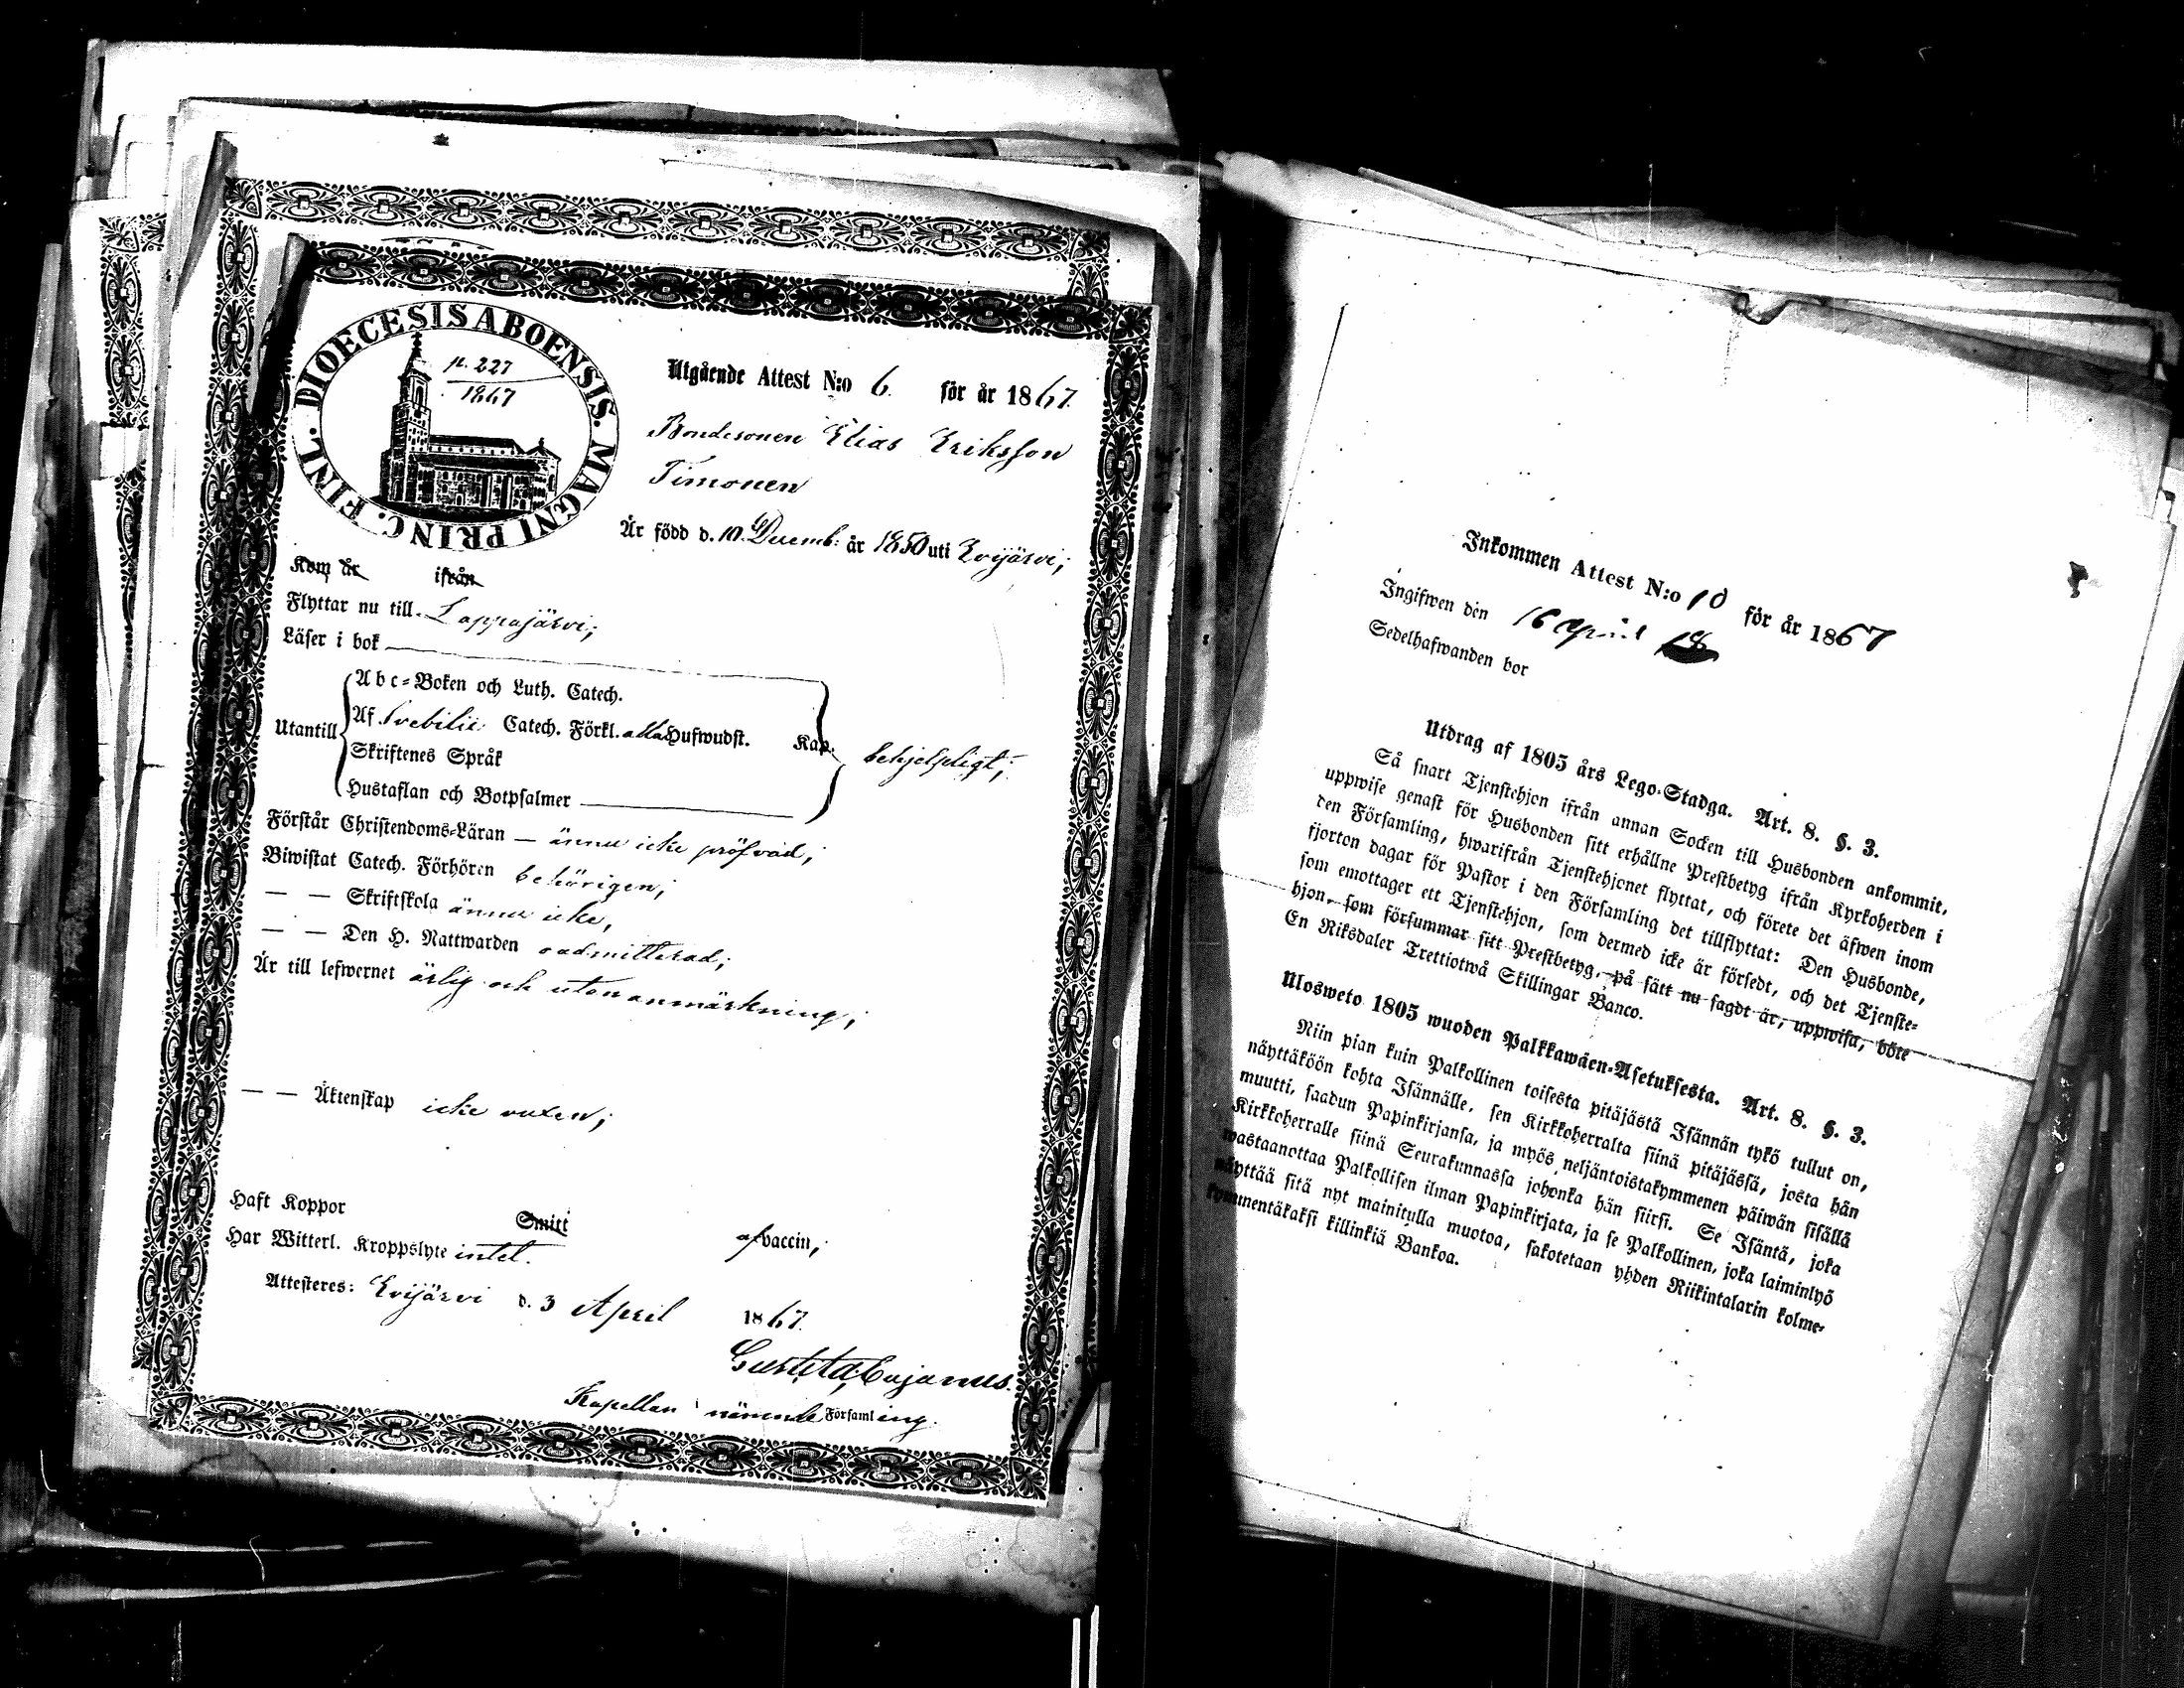 DIOECESIS ABOENSIS. MAGNI PRINC. FINL.
p. 227
1867
Utgående Attest N:o 6. för år 1867.
Bondesonen Elias Eriksson
Timonen
Är född d. 10. Decemb: år 1850 uti Evijärvi;
Kom år ifrån
Flyttar nu till Lappajärvi;
Läser i bok
Utantill
Abc-Boken och Luth. Catech.
Af Svebilii Catech. Förkl. alla Hufwudst. Kap.
Skriftenes Språk
Hustaflan och Botpsalmer
behjelpligt;
Förstår Christendoms-Läran — ännu icke pröfvad;
Biwistat Catech. Förhören behörigen;
— — Skriftskola ännu icke,
— — Den H. Nattwarden oadmitterad;
Är till lefwernet ärlig och utan anmärkning;
— — Äktenskap icke vuxen;
Haft Koppor Smitt af vaccin;
Har Witterl. Kroppslyte intet.
Attesteres: Evijärvi d. 3 April 1867.
Cajanus.
Kapellan i nämnde Församling.
Inkommen Attest N:o 10 för år 1867
Ingifwen den 16 April 18
Sedelhafwanden bor
Utdrag af 1805 års Lego-Stadga. Art. 8. §. 3.
Så snart Tjenstehjon ifrån annan Socken till Husbonden ankommit,
uppwise genast för Husbonden sitt erhållne Prestbetyg ifrån Kyrkoherden i
den Församling, hwarifrån Tjenstehjonet flyttat, och förete det äfwen inom
fjorton dagar för Pastor i den Församling det tillflyttat: Den Husbonde,
som emottager ett Tjenstehjon, som dermed icke är försedt, och det Tjenste-
hjon, som försummar sitt Prestbetyg, på sätt nu sagdt är, uppwisa, böte
En Riksdaler Trettiotwå Skillingar Banco.
Ulosweto 1805 wuoden Palkkawäen-Asetuksesta. Art. 8. §. 3.
Niin pian kuin Palkollinen toisesta pitäjästä Isännän tykö tullut on,
näyttäköön kohta Isännälle, sen Kirkkoherralta siinä pitäjässä, josta hän
muutti, saadun Papinkirjansa, ja myös neljäntoistakymmenen päiwän sisällä
Kirkkoherralle siinä Seurakunnassa johonka hän siirsi. Se Isäntä, joka
wastaanottaa Palkollisen ilman Papinkirjata, ja se Palkollinen, joka laiminlyö
näyttää sitä nyt mainitulla muotoa, sakotetaan yhden Riikintalarin kolme-
kymmentäkaksi killinkiä Bankoa.